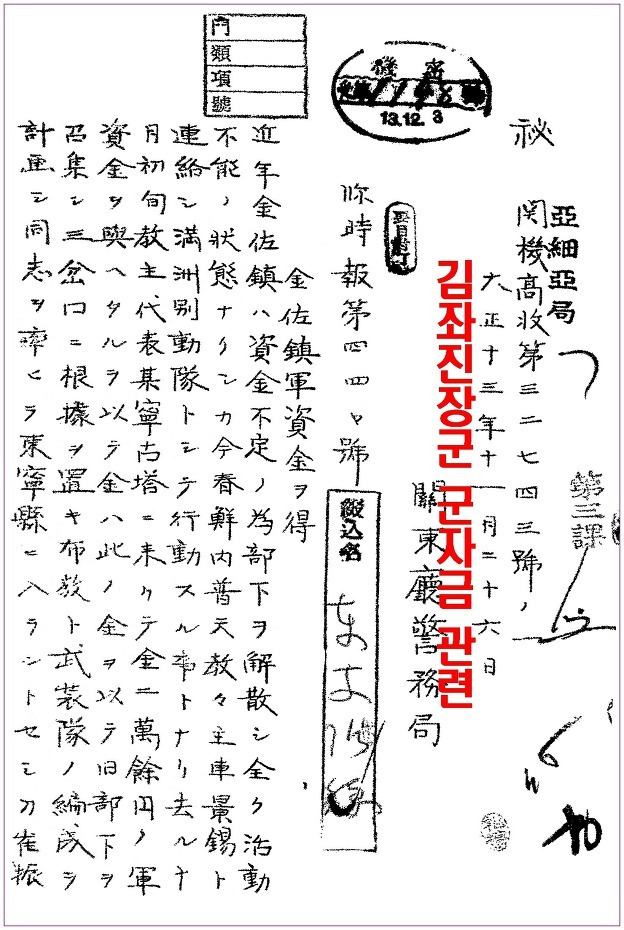 門
類
項
號
機密
13.12.3
祕
亞細亞局
関機高收第三二七四三號ノ
大正十三年十一月二十六日
第三課
김좌진장군 군자금 관련
關東廳警務局
時報第四四号號
綴込名
金佐鎮軍資金ヲ得
近年金佐鎮ハ資金不定ノ為部下ヲ解散シ全ク活動
不能ノ狀態ナリシカ今春鮮内普天教々主車景錫ト
連絡シ満洲別動隊トシテ行動スル事トナリ去ル十
月初旬教主代表某寧古塔ニ来リテ金二萬餘円ノ軍
資金ヲ與ヘタルヲ以テ金ハ此ノ金ヲ以テ旧部下ヲ
召集シ三岔口ニ根據ヲ置キ布教ト武装隊ノ編成ヲ
計画シ同志ヲ率ヒテ東寧縣ニ入ラントセシカ崔振